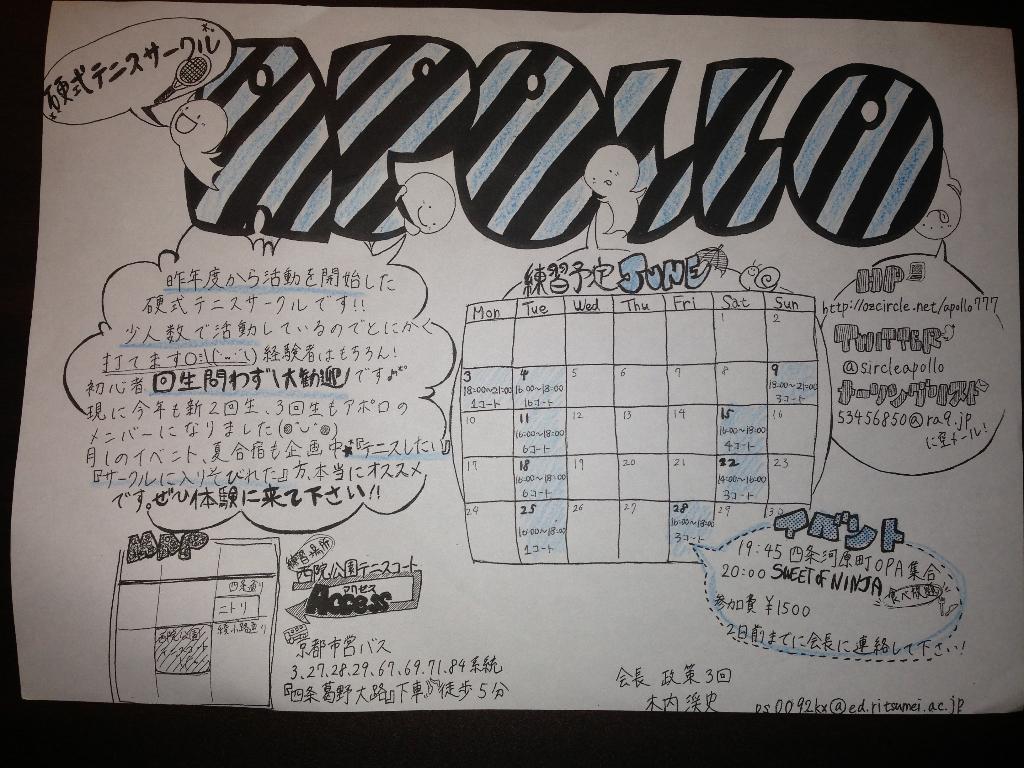 硬式テニスサークル
APOLLO
昨年度から活動を開始した
硬式テニスサークルです!!
少人数で活動しているのでとにかく
打てます 経験者はもちろん!
初心者 回生問わず 大歓迎 です♪
現に今年も新2回生、3回生もアポロの
メンバーになりました
月1のイベント、夏合宿も企画中★『テニスしたい』
『サークルに入りそびれた』方、本当にオススメ
です。ぜひ体験に来て下さい!!
練習予定 JUNE
Mon Tue Wed Thu Fri Sat Sun
1 2
3 4 5 6 7 8 9
18:00~21:00 16:00~18:00 18:00~21:00
1コート 16コート 3コート
10 11 12 13 14 15 16
16:00~18:00 16:00~18:00
6コート 4コート
17 18 19 20 21 22 23
16:00~18:00 14:00~16:00
6コート 3コート
24 25 26 27 28 29 30
16:00~18:00 16:00~18:00
1コート 3コート
HP
http://ozcircle.net/apollo777
TWITTER
@sircleapollo
メーリングリスト
53456850@ra9.jp
に空メール!
MAP
四条通り
ニトリ
綾小路通り
西院公園
練習場所
西院公園テニスコート
アクセス
Access
京都市営バス
3.27.28.29.67.69.71.84系統
『四条葛野大路』下車 徒歩5分
19:45 四条河原町OPA集合
20:00 SWEET OF NINJA
食べ放題
参加費 ¥1500
2日前までに会長に連絡して下さい!
会長 政策3回
木内
ps0092kx@ed.ritsumei.ac.jp